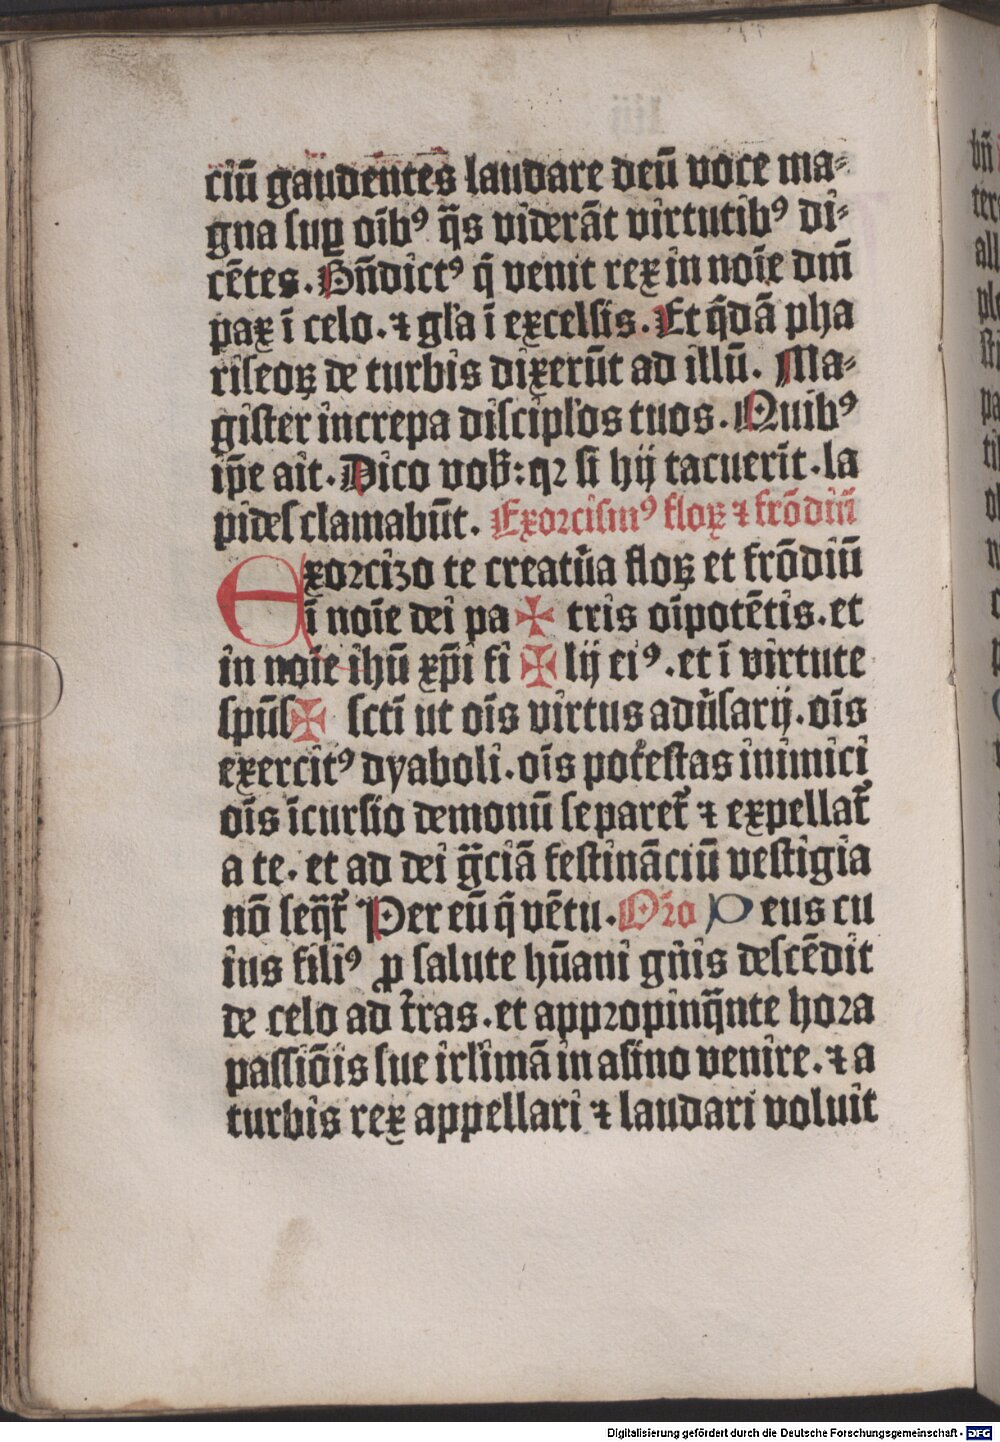 ciū gaudentes laudare deū voce ma⸗
gna suꝑ oīb⁹ q̄s viderāt virtutib⁹ di⸗
cētes. Bn̄dict⁹ q̄ venit rex in noīe dn̄i
pax ī celo. ⁊ gl'a ī excelsis. Et q̄dā pha
riseoꝝ de turbis dixerūt ad illū. Ma⸗
gister increpa discipl'os tuos. Quib⁹
ip̄e ait. Dico vob̄: qꝛ si hij tacuerīt. la
pides clamabūt. Exorcism⁹ floꝝ ⁊ frōdiū
Exorcizo te creatūa floꝝ et frōdiū
ī noīe dei pa ✠ tris oīpotētis. et
in noīe ihū xp̄i fi ✠ lij ei⁹. et ī virtute
spūs ✠ scti ut oīs virtus adūsarij. oīs
exercit⁹ dyaboli. oīs potestas inimici
oīs īcursio demonū separet᷑ ⁊ expellat᷑
a te. et ad dei gr̄ciā festināciū vestigia
nō seq̄t᷑ Per eū q̄ vētu. Oro Deus cu
ius fili⁹ ꝓ salute hūani gn̄is descēdit
de celo ad t̄ras. et appropinq̄nte hora
passiōis sue irl'imā in asino venire. ⁊ a
turbis rex appellari ⁊ laudari voluit
Digitalisierung gefördert durch die Deutsche Forschungsgemeinschaft - DFG